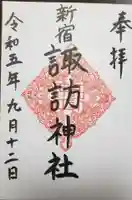 奉拝
新宿
諏訪神社
令和五年九月十二日